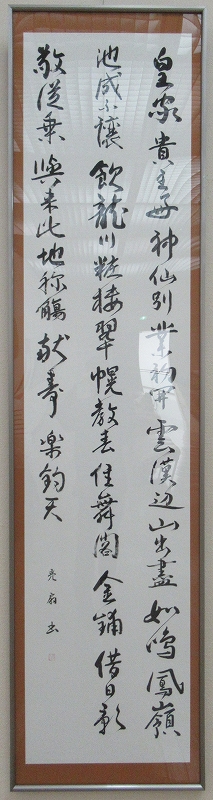 皇家貴主好神仙別業初開雲漢辺山出盡如鳴鳳嶺
池成不讓飲龍川粧楼翠幌教春住舞閣金鋪借日懸
敬従乗輿来此地称觴献壽楽鈞天
書